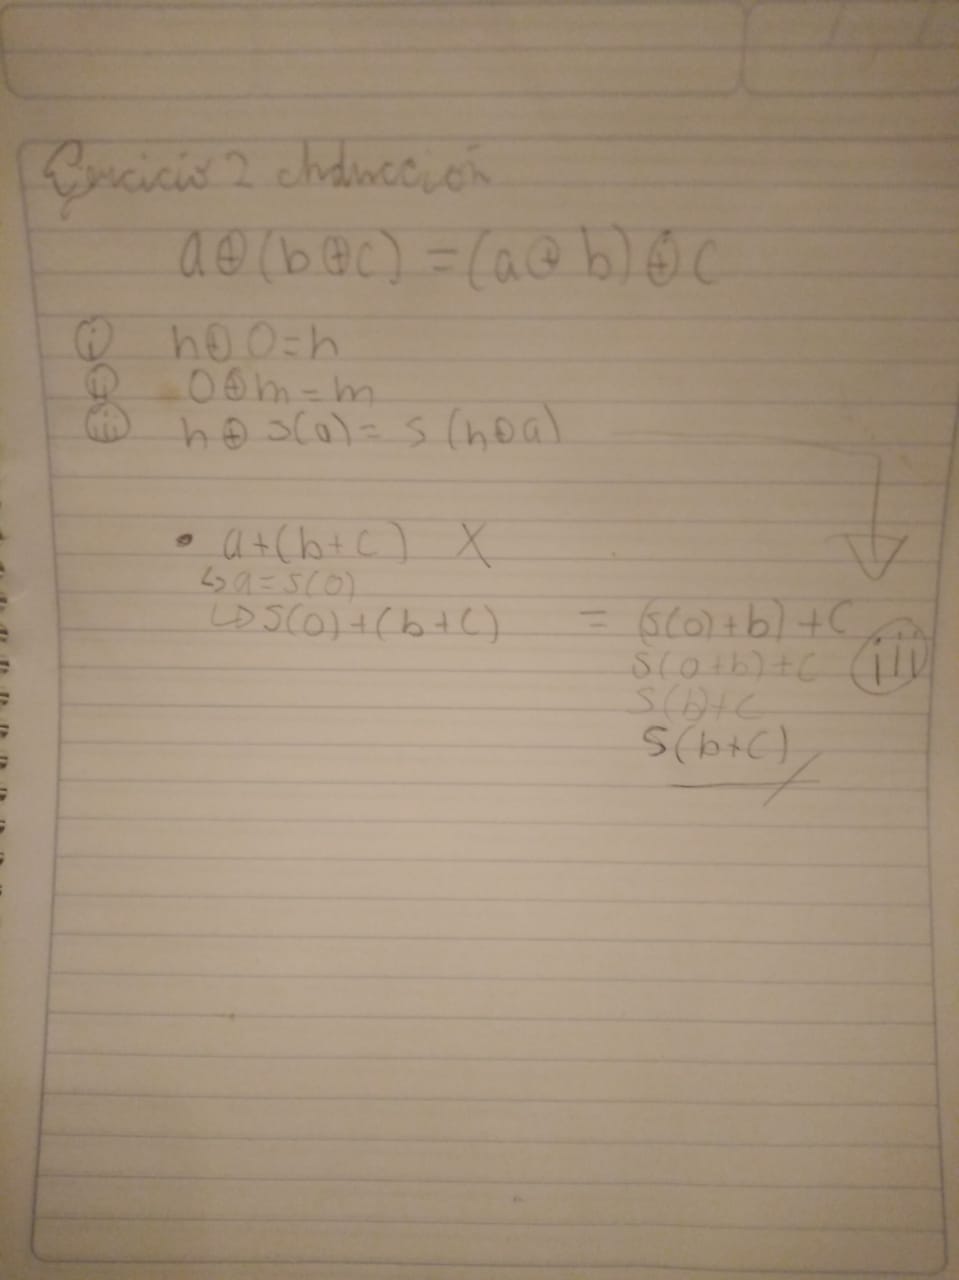 Ejercicio 2 Inducción
a⊕(b⊕c) = (a⊕b)⊕c
i n⊕0=n
ii 0⊕m=m
iii n⊕s(a)= s(n⊕a)
• a+(b+c) X
↳a=s(0)
↳s(0)+(b+c) = (s(0)+b)+c
s(0+b)+c iii
s(b)+c
s(b+c)